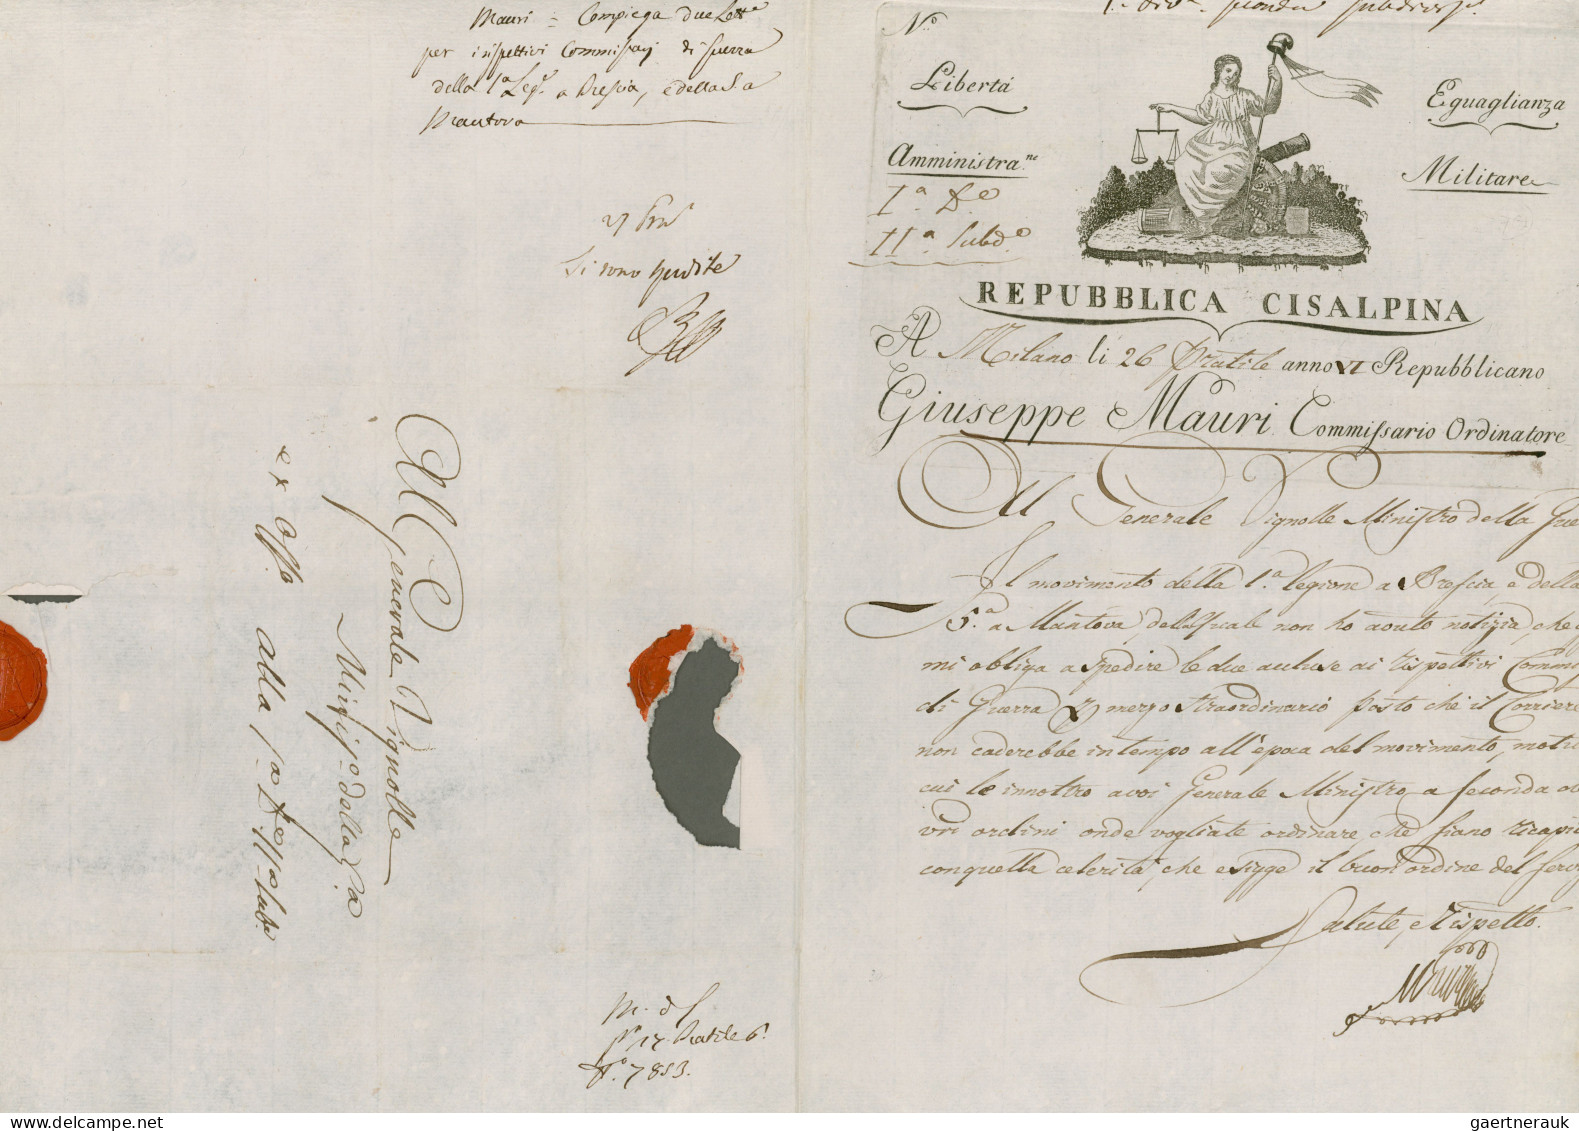 Mauri = Compiega due Lett.e
per i rispettivi Commissarj di Guerra
della 1.a Leg.e a Brescia, e della 5.a
Mantova
27 Prat.
Si sono spedite
Al C.
Generale Vignolle
Minis.o della G.a
ex Off.o alla 1.a D. II.a Sub.e
M. d. G.
17. Pratile 6.
N.o 7853.
1.a Div.e seconda subdivis.e
N.o
Libertá
Eguaglianza
Amministra.ne
Militare
I.a D.e
II.a Subd.e
REPUBBLICA CISALPINA
A Milano li 26 Pratile anno VI Repubblicano
Giuseppe Mauri Commissario Ordinatore
Al Generale Vignolle Ministro della Gue
Il movimento della 1.a legione a Brescia, e della
5.a a Mantova, della quale non ho avuto notizia, che
mi obliga a spedire le due accluse ai rispettivi Commis
di Guerra per mezzo straordinario posto che il Corriere
non caderebbe in tempo all'epoca del movimento, motiv
cui le innoltro a voi Generale Ministro a seconda
vri ordini onde vogliate ordinare, che siano ricapi
con quella celerità, che esigge il buon ordine del serv
Salute, e Rispetto.
Mauri
gaertnerauk